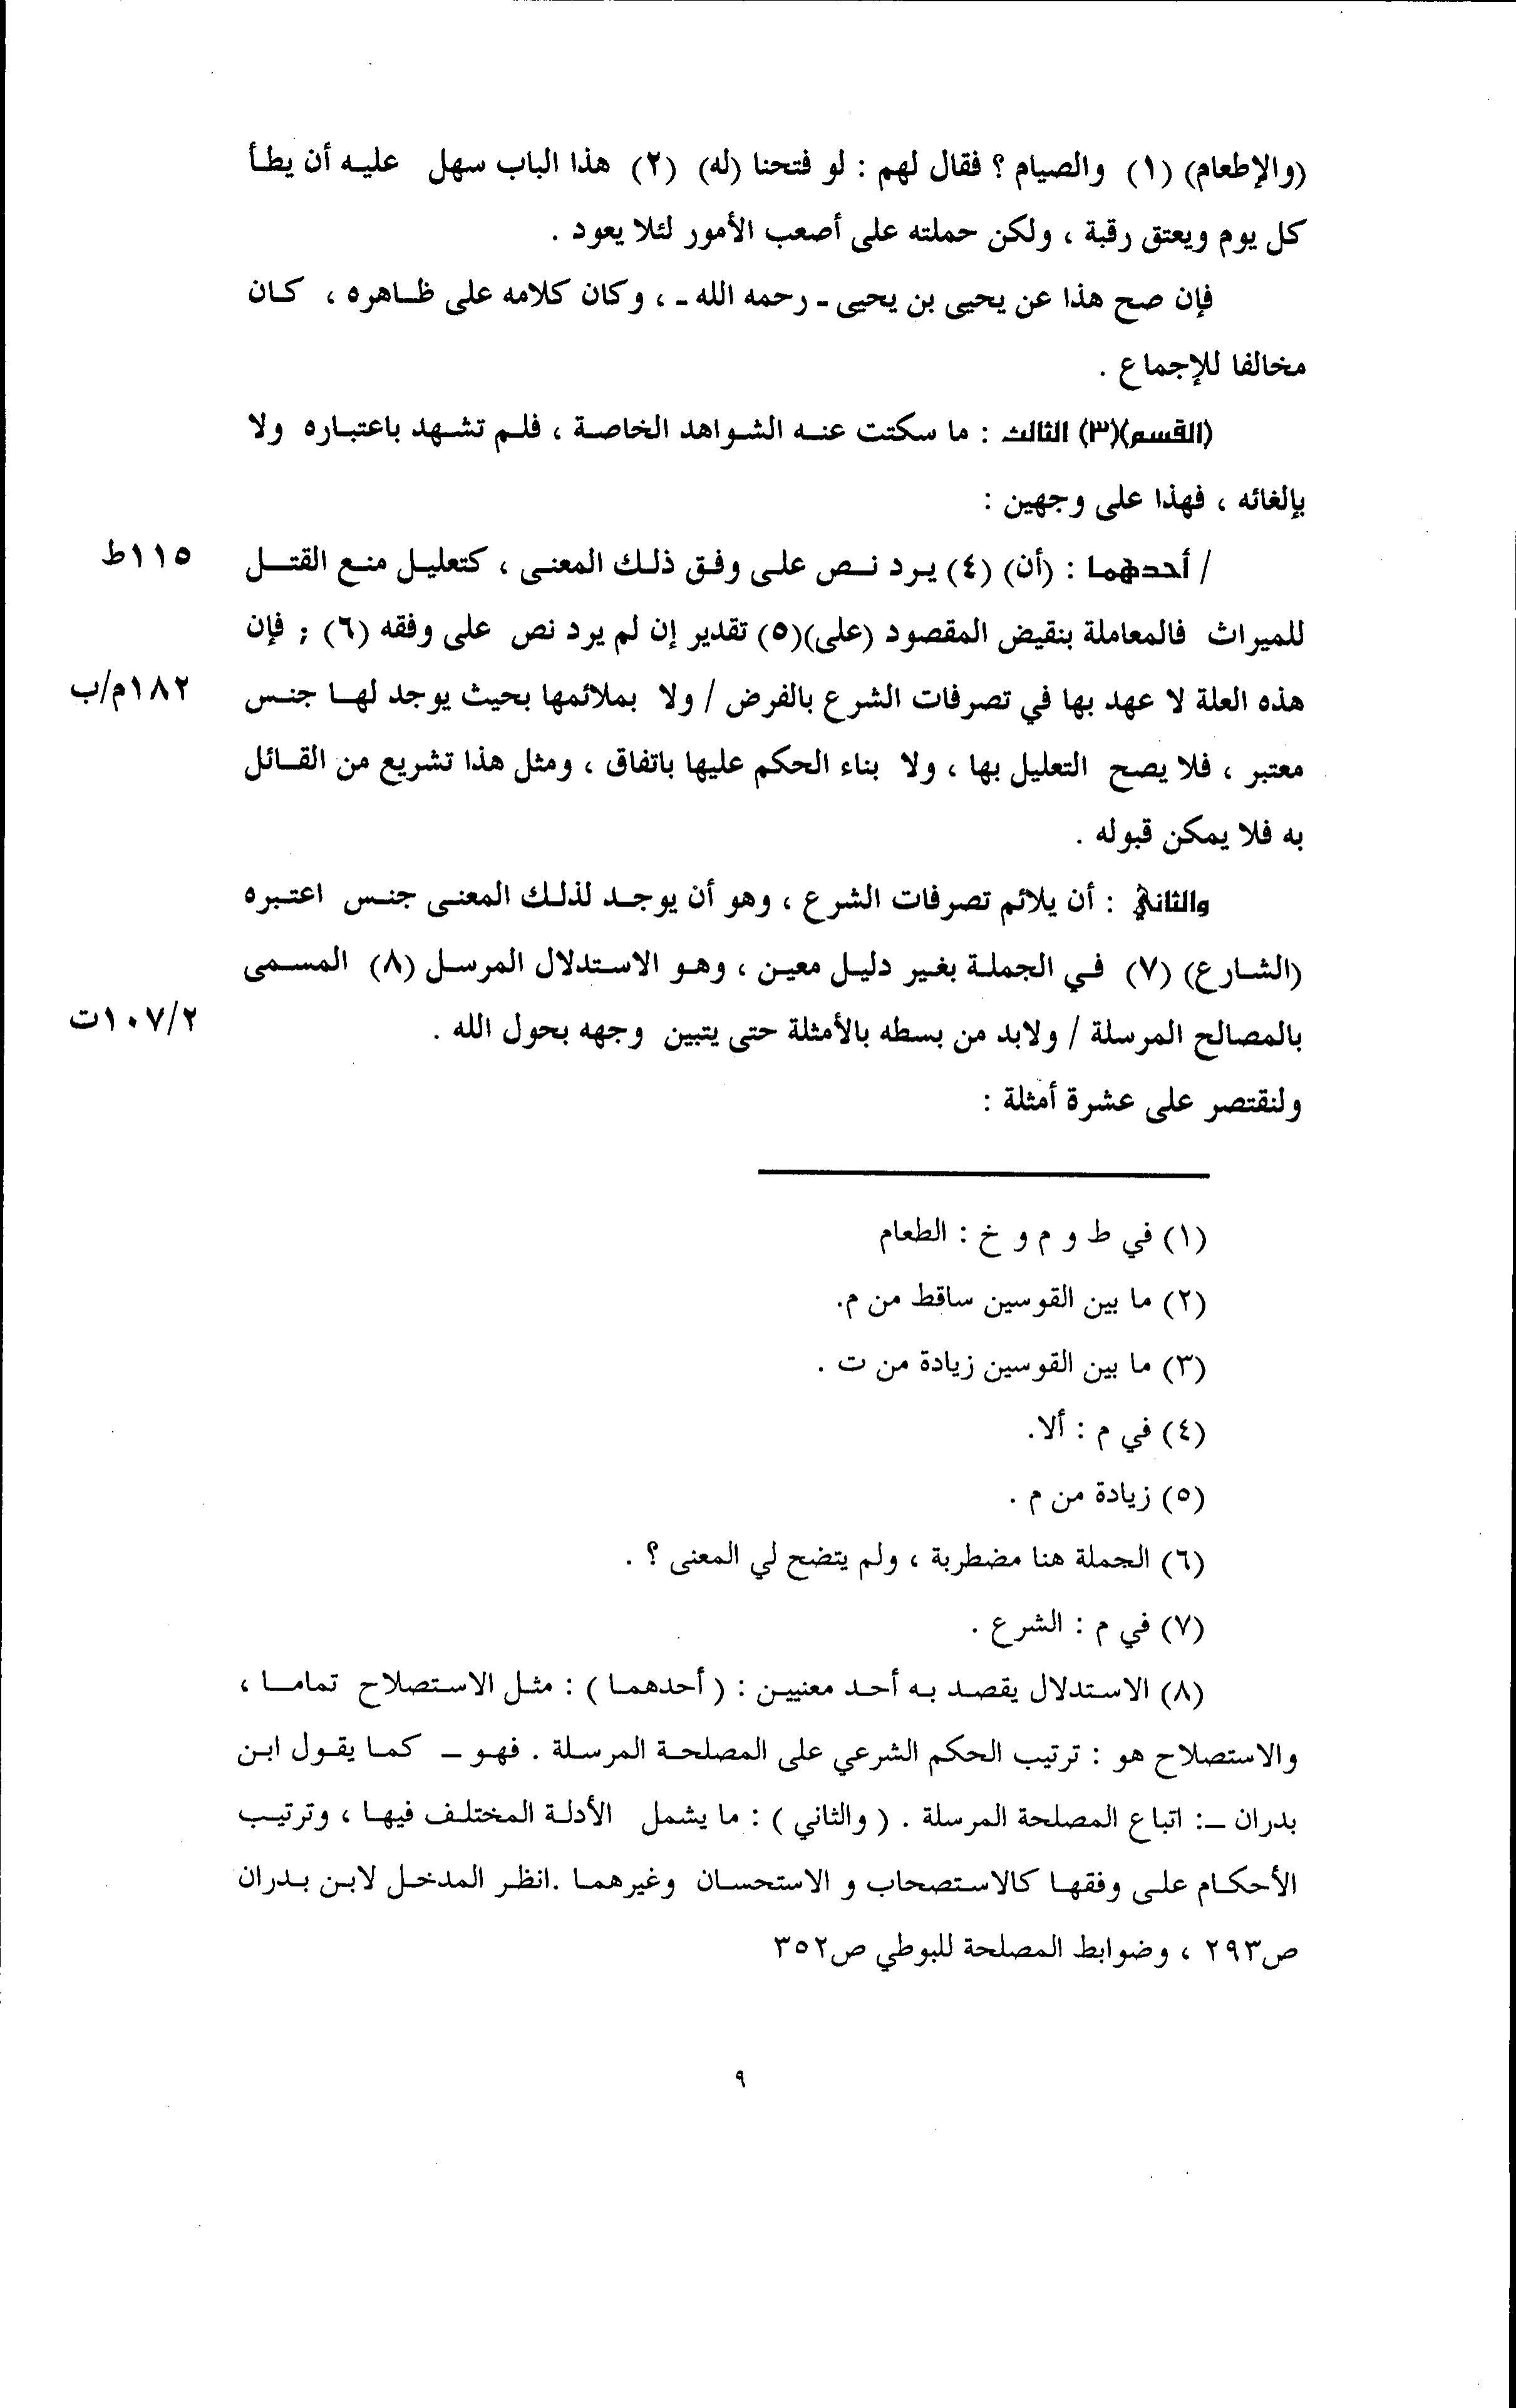 (والإطعام) (١) والصيام ؟ فقال لهم : لو فتحنا (له) (٢) هذا الباب سهل عليه أن يطأ
كل يوم ويعتق رقبة ، ولكن حملته على أصعب الأمور لئلا يعود .
فإن صح هذا عن يحيى بن يحيى - رحمه الله - ، وكان كلامه على ظاهره ، كان
مخالفا للإجماع .
(القسم)(٣) الثالث : ما سكتت عنه الشواهد الخاصة ، فلم تشهد باعتباره ولا
بإلغائه ، فهذا على وجهين :
/ أحدهما : (أن) (٤) يرد نص على وفق ذلك المعنى ، كتعليل منع القتل
١١٥ط
للميراث فالمعاملة بنقيض المقصود (على)(٥) تقدير إن لم يرد نص على وفقه (٦) ; فإن
هذه العلة لا عهد بها في تصرفات الشرع بالفرض / ولا بملائمها بحيث يوجد لها جنس
١٨٢م/ب
معتبر ، فلا يصح التعليل بها ، ولا بناء الحكم عليها باتفاق ، ومثل هذا تشريع من القائل
به فلا يمكن قبوله .
والثاني : أن يلائم تصرفات الشرع ، وهو أن يوجد لذلك المعنى جنس اعتبره
(الشارع) (٧) في الجملة بغير دليل معين ، وهو الاستدلال المرسل (٨) المسمى
بالمصالح المرسلة / ولابد من بسطه بالأمثلة حتى يتبين وجهه بحول الله .
١٠٧/٢ت
ولنقتصر على عشرة أمثلة :
(١) في ط و م و خ : الطعام
(٢) ما بين القوسين ساقط من م.
(٣) ما بين القوسين زيادة من ت .
(٤) في م : ألا.
(٥) زيادة من م .
(٦) الجملة هنا مضطربة ، ولم يتضح لي المعنى ؟ .
(٧) في م : الشرع .
(٨) الاستدلال يقصد به أحد معنيين : ( أحدهما ) : مثل الاستصلاح تماما ،
والاستصلاح هو : ترتيب الحكم الشرعي على المصلحة المرسلة . فهو – كما يقول ابن
بدران –: اتباع المصلحة المرسلة . ( والثاني ) : ما يشمل الأدلة المختلف فيها ، وترتيب
الأحكام على وفقها كالاستصحاب و الاستحسان وغيرهما .انظر المدخل لابن بدران
ص٢٩٣ ، وضوابط المصلحة للبوطي ص٣٥٢
٩